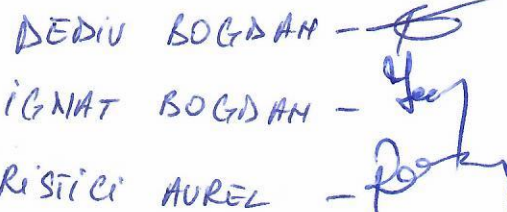 DEDIU BOGDAN -
IGNAT BOGDAN -
RISTICI AUREL -